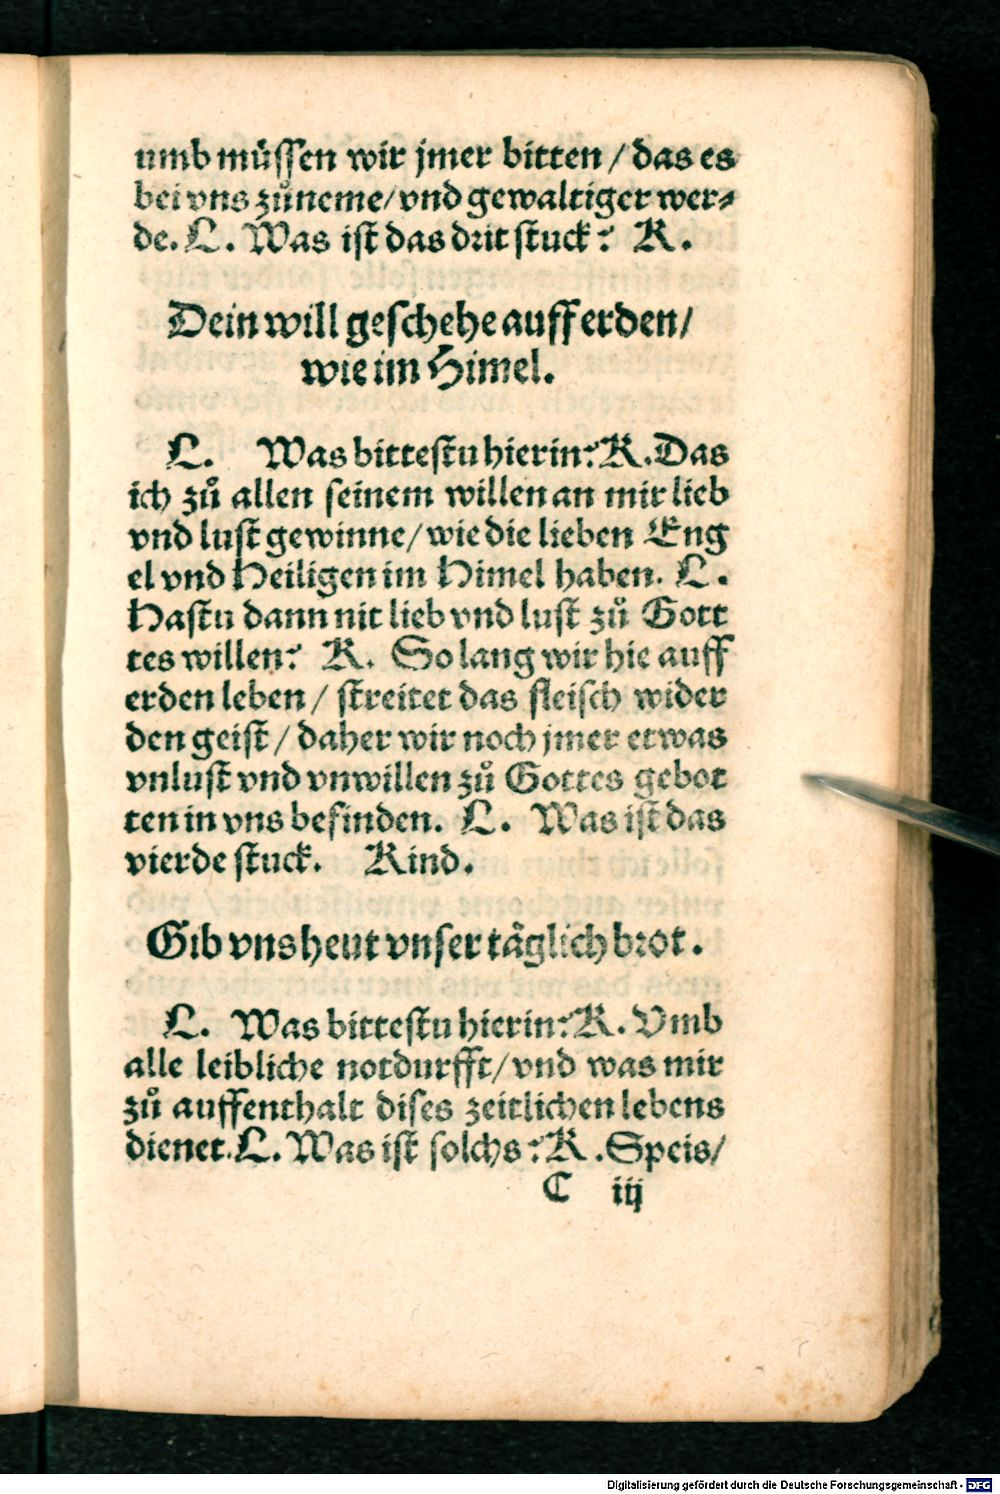 umb müssen wir jmer bitten / das es
bei vns zůneme/vnd gewaltiger wer⸗
de. L. Was ist das drit stuck? K.
Dein will geschehe auff erden/
wie im Himel.
L. Was bittestu hierin? K. Das
ich zů allen seinem willen an mir lieb
vnd lust gewinne/wie die lieben Eng
el vnd Heiligen im Himel haben. L.
Hastu dann nit lieb vnd lust zů Gott
tes willen? K. So lang wir hie auff
erden leben / streitet das fleisch wider
den geist / daher wir noch jmer etwas
vnlust vnd vnwillen zů Gottes gebot
ten in vns befinden. L. Was ist das
vierde stuck. Kind.
Gib vns heut vnser täglich brot.
L. Was bittestu hierin? K. Vmb
alle leibliche notdurfft/vnd was mir
zů auffenthalt dises zeitlichen lebens
dienet. L. Was ist solchs? K. Speis/
C iij
Digitalisierung gefördert durch die Deutsche Forschungsgemeinschaft - DFG